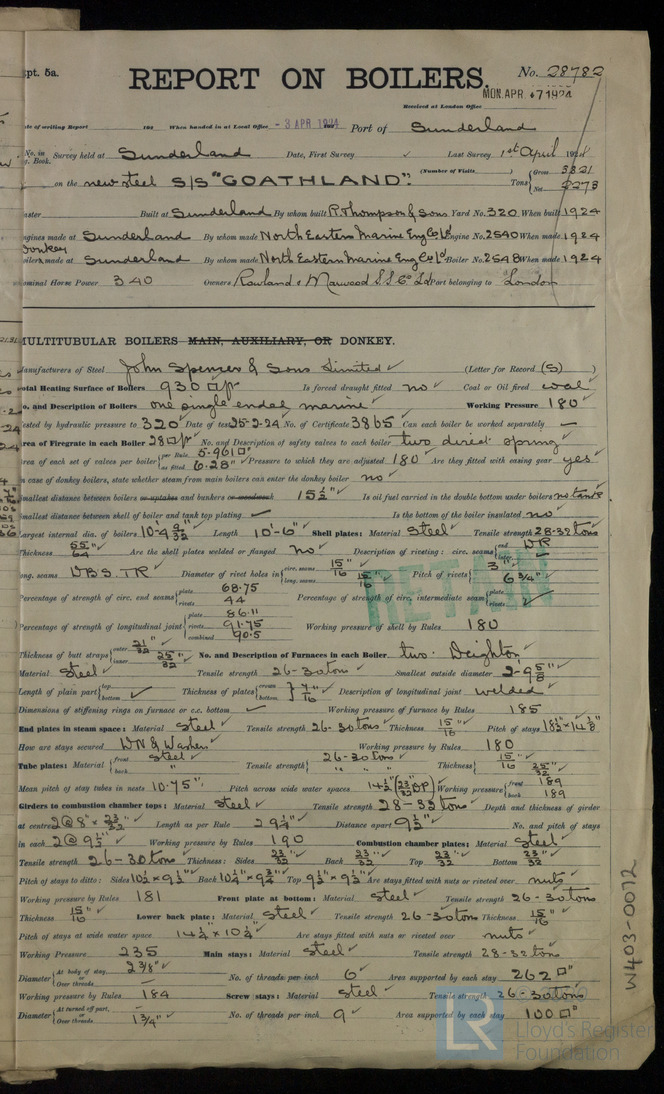 pt. 5a.
REPORT ON BOILERS.
No. 28782
MON. APR. 7 1924
Received at London Office
te of writing Report 192 When handed in at Local Office - 3 APR. 1924 Port of Sunderland
No. in Book. Survey held at Sunderland Date, First Survey ✓ Last Survey 1st April 1924
on the new steel S/S "GOATHLAND". (Number of Visits ) Tons { Gross 3821 Net 2273
aster Built at Sunderland By whom built R. Thompson & Sons Yard No. 320 When built 1924
ngines made at Sunderland By whom made North Eastern Marine Eng Co Ld Engine No. 2540 When made 1924
Donkey
oilers made at Sunderland By whom made North Eastern Marine Eng Co Ld Boiler No. 2548 When made 1924
ominal Horse Power 340 Owners Rowland & Marwood S.S. Co Ld Port belonging to London
MULTITUBULAR BOILERS MAIN, AUXILIARY, OR DONKEY.
Manufacturers of Steel John Spencer & Sons Limited ✓ (Letter for Record (S) )
Total Heating Surface of Boilers 930 □ft Is forced draught fitted no ✓ Coal or Oil fired coal
No. and Description of Boilers one single ended marine ✓ Working Pressure 180
Tested by hydraulic pressure to 320 Date of test 25-2-24 No. of Certificate 3865 Can each boiler be worked separately —
Area of Firegrate in each Boiler 28 □ft No. and Description of safety valves to each boiler two direct spring
Area of each set of valves per boiler { per Rule 5.961 □" as fitted 6.28" Pressure to which they are adjusted 180 Are they fitted with easing gear yes
In case of donkey boilers, state whether steam from main boilers can enter the donkey boiler no ✓
Smallest distance between boilers or uptakes and bunkers or woodwork 15½" Is oil fuel carried in the double bottom under boilers no tank
Smallest distance between shell of boiler and tank top plating ✓ Is the bottom of the boiler insulated no
Largest internal dia. of boilers 10'-4 9/32" Length 10'-6" Shell plates: Material Steel Tensile strength 28-32 tons
Thickness 55/64" Are the shell plates welded or flanged no Description of riveting: circ. seams { end DR inter. ✓
long. seams DBS. TR Diameter of rivet holes in { circ. seams 15/16" long. seams 15/16" Pitch of rivets { 3" 6¾"
Percentage of strength of circ. end seams { plate 68.75 rivets 44 Percentage of strength of circ. intermediate seam { plate rivets ✓
Percentage of strength of longitudinal joint { plate 86.11 rivets 91.75 combined 90.5 Working pressure of shell by Rules 180
RETAIN
Thickness of butt straps { outer 21/32" inner 25/32" No. and Description of Furnaces in each Boiler two Deighton
Material Steel Tensile strength 26-30 tons Smallest outside diameter 2-9 5/8"
Length of plain part { top bottom ✓ Thickness of plates { crown bottom } 7/16" Description of longitudinal joint welded
Dimensions of stiffening rings on furnace or c.c. bottom ✓ Working pressure of furnace by Rules 185
End plates in steam space: Material Steel Tensile strength 26-30 tons Thickness 15/16" Pitch of stays 18½" x 14⅛"
How are stays secured DN & Washers Working pressure by Rules 180
Tube plates: Material { front Steel back " Tensile strength { 26-30 tons " " " Thickness { 15/16" 25/32"
Mean pitch of stay tubes in nests 10.75" Pitch across wide water spaces 14½" (23/32" DP) Working pressure { front 189 back 189
Girders to combustion chamber tops: Material Steel Tensile strength 28-32 tons Depth and thickness of girder
at centre 2 @ 8" x 23/32" Length as per Rule 29¼" Distance apart 9½" No. and pitch of stays
in each 2 @ 9½" Working pressure by Rules 190 Combustion chamber plates: Material Steel
Tensile strength 26-30 tons Thickness: Sides 23/32" Back 23/32" Top 23/32" Bottom 23/32"
Pitch of stays to ditto: Sides 10½" x 9½" Back 10¼" x 9¾" Top 9½" x 9½" Are stays fitted with nuts or riveted over nuts
Working pressure by Rules 181 Front plate at bottom: Material Steel Tensile strength 26-30 tons
Thickness 15/16" Lower back plate: Material Steel Tensile strength 26-30 tons Thickness 15/16"
Pitch of stays at wide water space 14¼" x 10¼" Are stays fitted with nuts or riveted over nuts
Working Pressure 235 Main stays: Material Steel Tensile strength 28-32 tons
Diameter { At body of stay, or Over threads 2⅜" No. of threads per inch 6 Area supported by each stay 262 □"
Working pressure by Rules 184 Screw stays: Material Steel Tensile strength 26-30 tons
Diameter { At turned off part, or Over threads 1¾" No. of threads per inch 9 Area supported by each stay 100 □"
W403-0072
LR
Lloyd's Register
Foundation